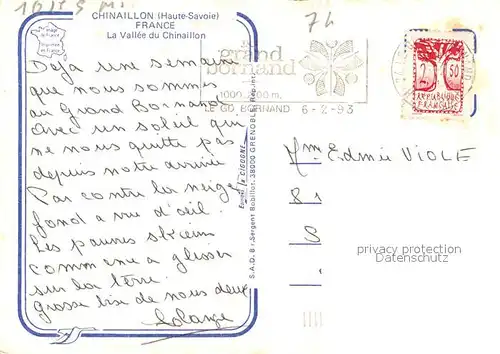 CHINAILLON (Haute-Savoie)
FRANCE
La Vallée du Chinaillon
74
Déjà une semaine
que nous sommes
au Grand Bornand
avec un soleil qui
ne nous quitte pas
depuis notre arrivée
Par contre la neige
fond a vue d'oeil.
Les pauvres skieurs
commence a glisser
sur la terre.
grosse bise de nous deux
Solange
le grand
bornand
1000-2100 m.
LE GD BORNAND 6-2-93
2 50
REPUBLIQUE
FRANÇAISE
Mme Edmée VIOLE
81
S
privacy protection
Datenschutz
S.A.D. 8 r. Sergent Bobillot, 38000 GRENOBLE
Editions "La CIGOGNE"